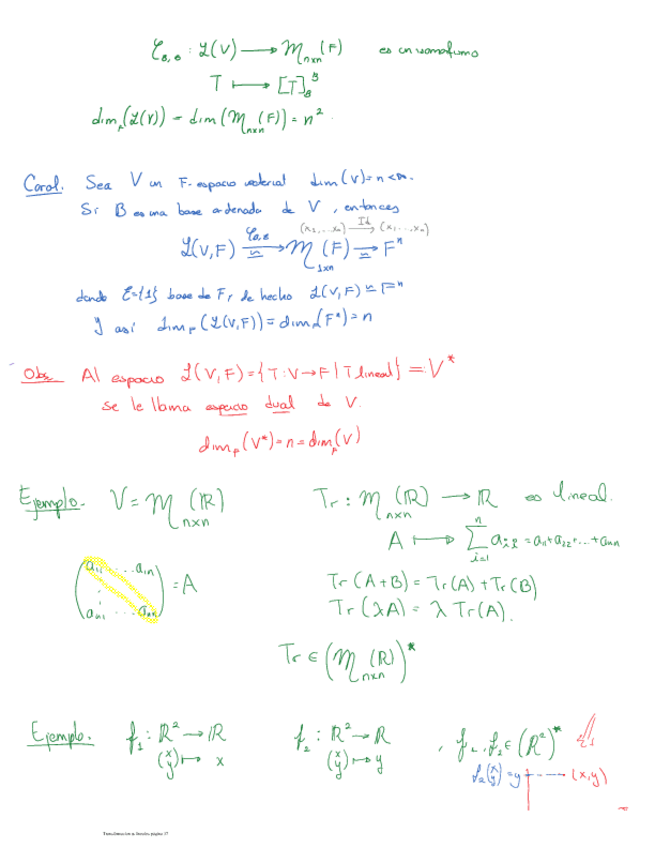 φ_{B,B} : L(V) ⟶ M_{n×n}(F) es un isomorfismo
T ⟼ [T]_B^B
dim_F(L(V)) = dim(M_{n×n}(F)) = n².
Corol. Sea V un F-espacio vectorial dim(V)=n<∞.
Si B es una base ordenada de V, entonces
(x₁,...,xₙ) ⟶^{Id} (x₁,...,xₙ)
L(V,F) ≃ M_{1×n}(F) ≃ Fⁿ
donde E={1} base de F, de hecho L(V,F) ≃ Fⁿ
y así dim_F(L(V,F)) = dim_F(Fⁿ) = n
Obs. Al espacio L(V,F) = {T:V→F | T lineal} =: V*
se le llama espacio dual de V.
dim_F(V*) = n = dim_F(V)
Ejemplo. V = M_{n×n}(ℝ) Tr : M_{n×n}(ℝ) ⟶ ℝ es lineal.
A ⟼ ∑_{i=1}^{n} a_{ii} = a₁₁+a₂₂+...+aₙₙ
(a₁₁ ... a₁ₙ
⋮
aₙ₁ ... aₙₙ) = A
Tr(A+B) = Tr(A) + Tr(B)
Tr(λA) = λ Tr(A).
Tr ∈ (M_{n×n}(ℝ))*
Ejemplo. f₁ : ℝ² → ℝ f₂ : ℝ² → ℝ , f₁, f₂ ∈ (ℝ²)*
(x y) ↦ x (x y) ↦ y
f₂(x y) = y (x,y)
Transformaciones lineales página 17